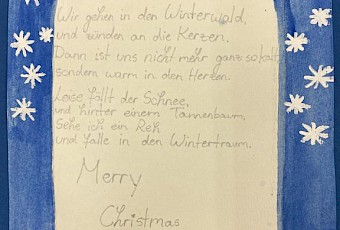 Wir gehen in den Winterwald,
und zünden an die Kerzen.
Dann ist uns nicht mehr ganz so kalt,
sondern warm in den Herzen.
Leise fällt der Schnee,
und hinter einem Tannenbaum,
Sehe ich ein Reh
und falle in den Wintertraum.
Merry
Christmas